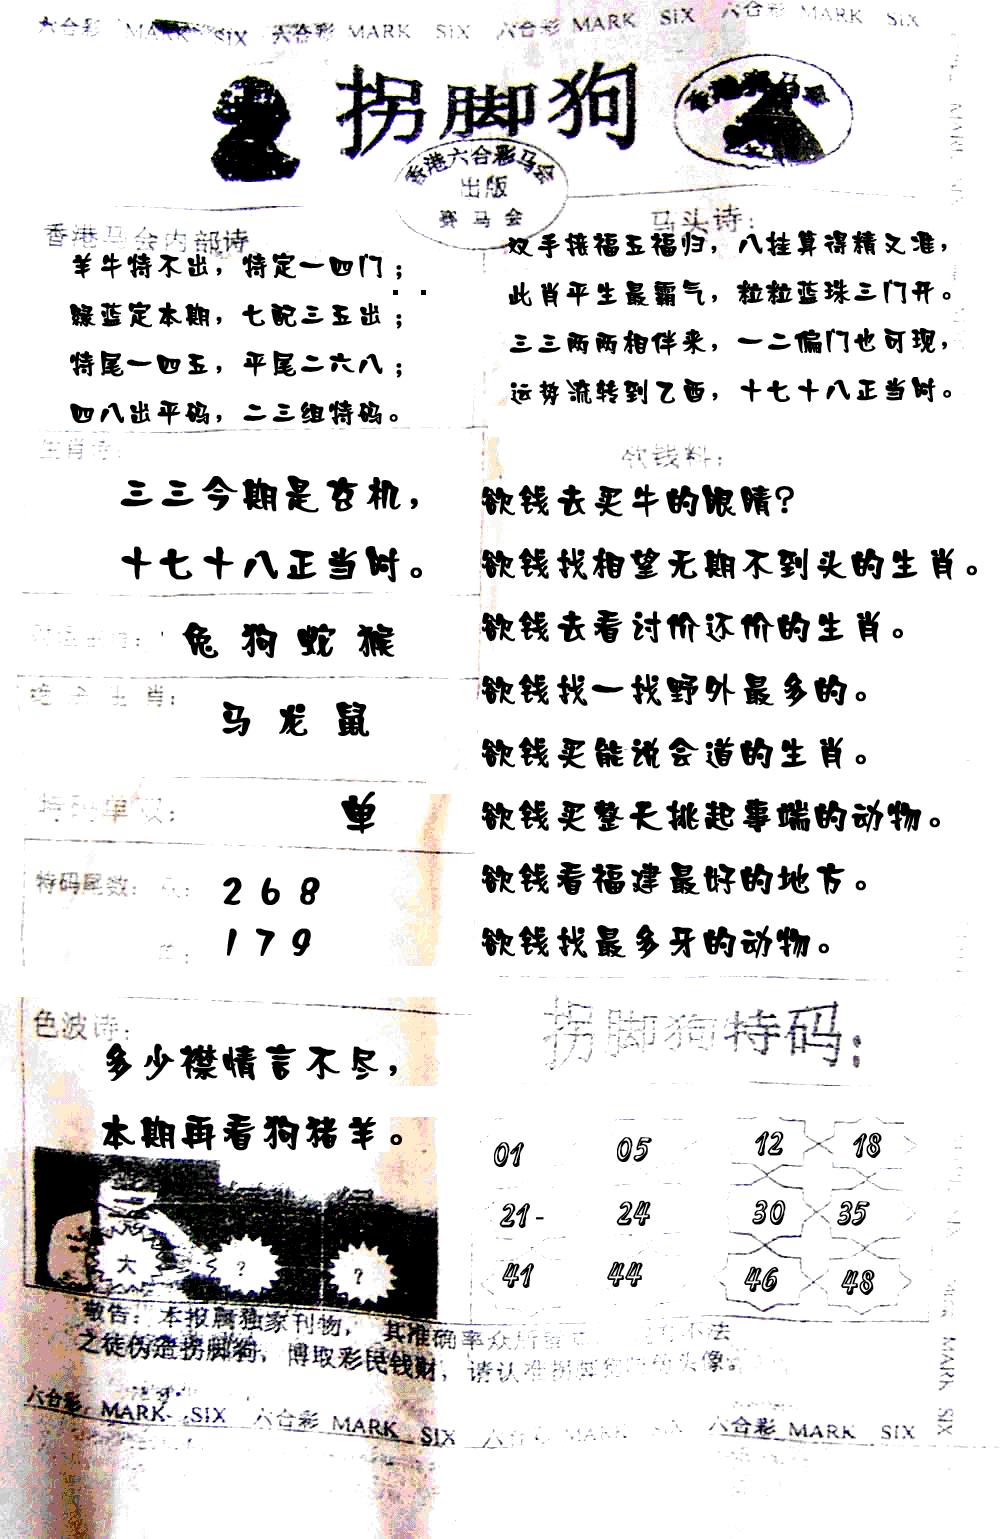 六合彩 MARK SIX 六合彩 MARK SIX 六合彩 MARK SIX 六合彩 MARK SIX
拐脚狗
香港六合彩马会
出版
赛马会
香港马会内部诗
羊牛特不出，特定一四门；
绿蓝定本期，七配三五出；
特尾一四五，平尾二六八；
四八出平码，二三组特码。
马头诗：
双手接福五福归，八挂算得精又准，
此肖平生最霸气，粒粒蓝珠三门开。
三三两两相伴来，一二偏门也可现，
运势流转到乙酉，十七十八正当时。
生肖诗：
三三今期是玄机，
十七十八正当时。
兔 狗 蛇 猴
肖：
马 龙 鼠
特码单双：
单
特码尾数：
2 6 8
1 7 9
欲钱料：
欲钱去买牛的眼睛?
欲钱找相望无期不到头的生肖。
欲钱去看讨价还价的生肖。
欲钱找一找野外最多的。
欲钱买能说会道的生肖。
欲钱买整天挑起事端的动物。
欲钱看福建最好的地方。
欲钱找最多牙的动物。
色波诗：
多少襟情言不尽，
本期再看狗猪羊。
大 ? ?
拐脚狗特码：
01 05 12 18
21- 24 30 35
41 44 46 48
敬告：本报属独家刊物，其准确率众所 不法
之徒伪造拐脚狗，博取彩民钱财，请认准拐脚 头像
六合彩 MARK SIX 六合彩 MARK SIX 六合彩 MARK SIX 六合彩 MARK SIX
MARK SIX